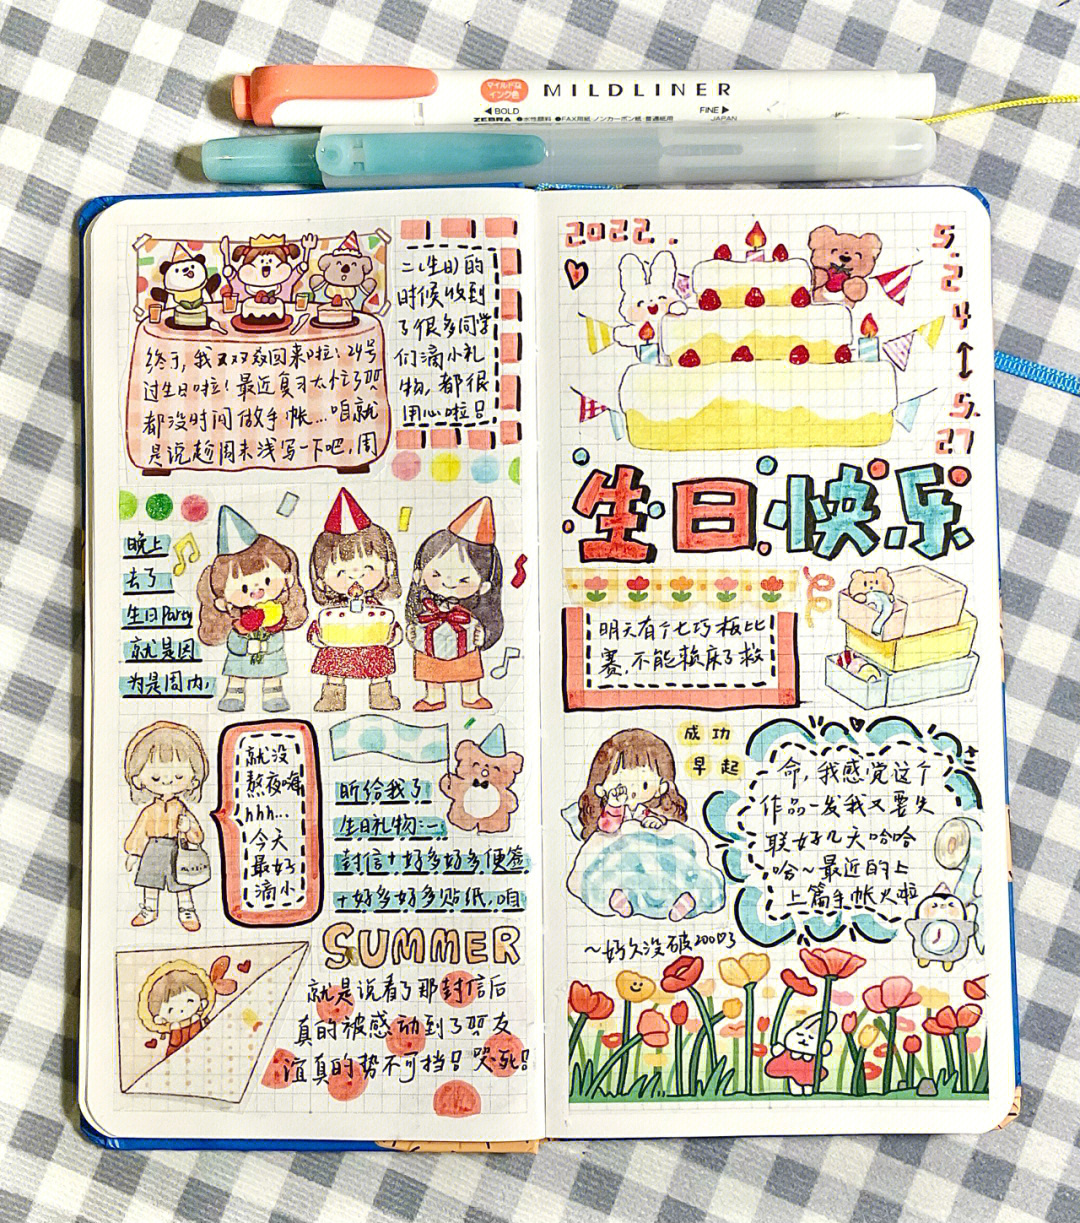 マイルドな
インク色
MILDLINER
◀BOLD
FINE▶
ZEBRA ●水性顔料 ●FAX用紙 ノンカーボン紙 普通紙用
JAPAN
终于,我又双叒回来啦!24号
过生日啦!最近复习太忙了哭
都没时间做手帐...咱就
是说趁周末浅写一下吧,周
二(生日)的
时候收到
了很多同学
们滴小礼
物,都很
用心啦!
晚上
去了
生日Party
就是因
为是周内,
就没
熬夜嗨
hhh...
今天
最好
滴小
昕给我了
生日礼物:一
封信+好多好多便签
+好多好多贴纸,咱
SUMMER
就是说看了那封信后
真的被感动到了哭友
谊真的势不可挡!哭死!
2022.
5.24
↕
5.27
生日快乐
明天有个七巧板比
赛,不能赖床了救
成功
早起
命,我感觉这个
作品一发我又要失
联好几天哈哈
哈~最近的上
上篇手帐火啦
~好久没破200♡了